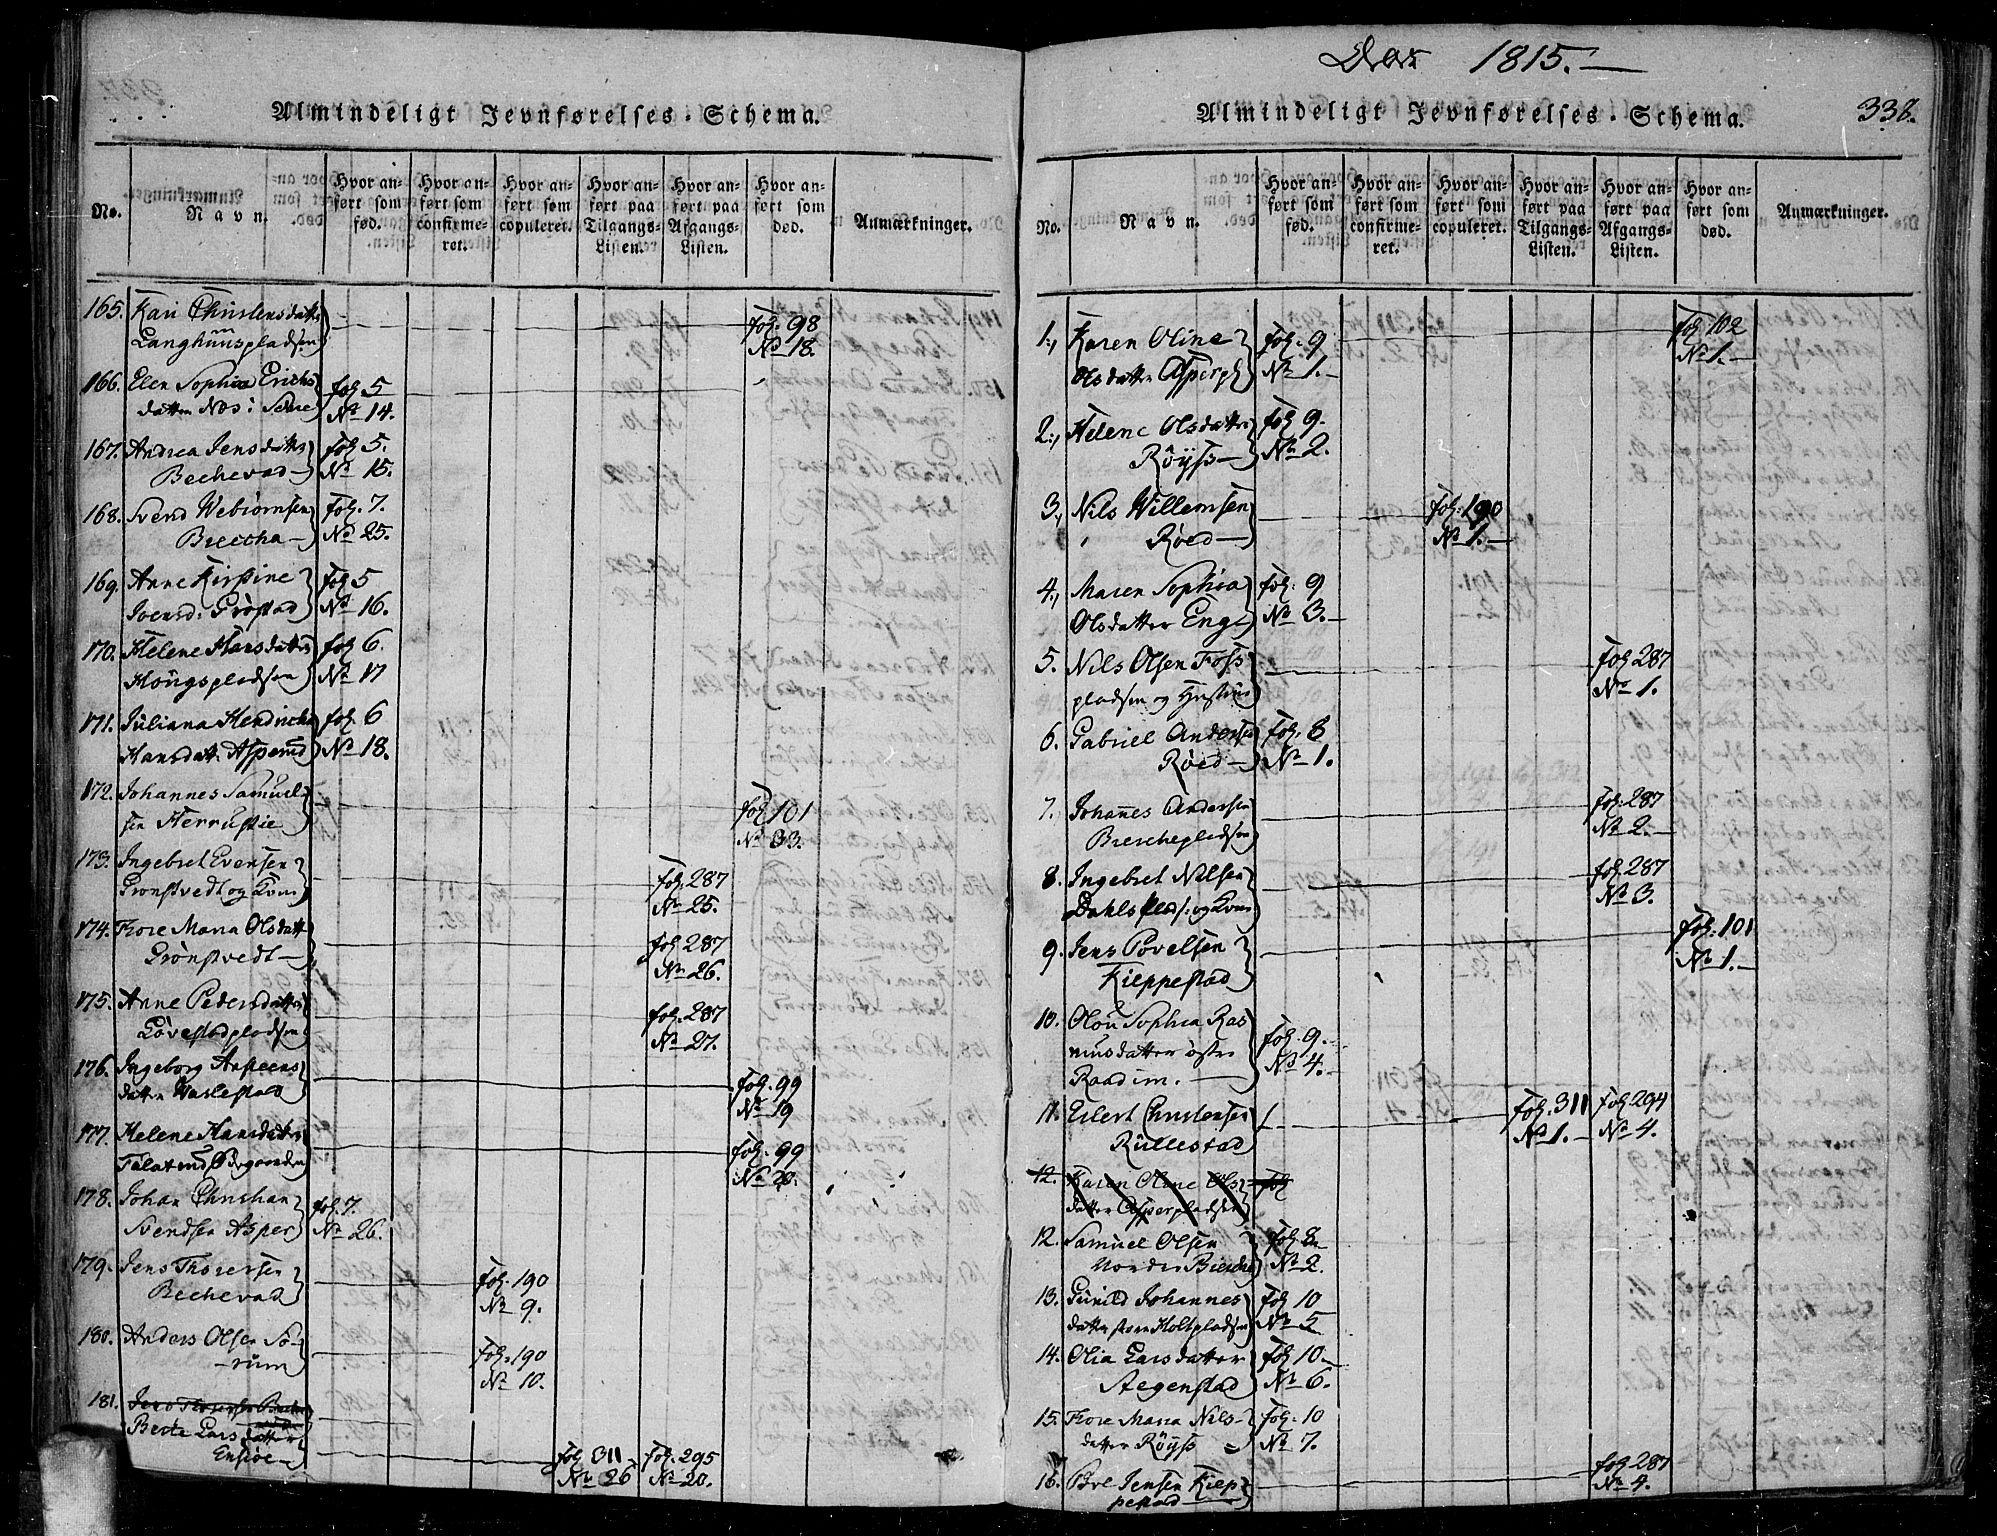 Almindeligt Jevnførelses-Schema.
No.
Navn.
Hvor anført som fød.
Hvor anført som confirmeret.
Hvor anført som copuleret.
Hvor anført paa Tilgangs-Listen.
Hvor anført paa Afgangs-Listen.
Hvor anført som død.
Anmærkninger.
165. Kari Christensdatter fol. 98
Langhuuspladsen No 18.
166. Elen Sophia Erichs fol 5
datter Næs i No 14.
167. Andrea Jensdatter fol 5.
Bechevad No 15.
168. Svend Webiørnsen fol. 7.
Breecha No 25.
169. Anne Kirstine fol 5
Ivensd: Grøstad No 16.
170. Helene Hansdatter fol 6.
Houngspladsen No 17
171. Juliana Hendricha fol. 6
Hansdatt. Asperud No 18.
172. Johannes Samuel fol 101
sen No 33.
173. Ingebret Evensen fol. 287
Grønstvedt og Kone No 25.
174. Tore Maria Olsdatt fol. 287
Grønstvedt No 26.
175. Anne Pedersdatter fol. 287
Løvestadpladsen No 27.
176. Ingeborg fol. 99
datter No 19
177. Helene Hansdatter fol. 99
No 20.
178. Johan Christian fol. 7.
Svendsen Asper No 26.
179. Jens Thoresen fol. 190
Bechevad No 9.
180. Anders Olsen Sø- fol. 190
rum No 10.
181. Jens Thoresen
Berte Lars datter fol 311 fol. 295
Ensiøe No 26 No 20.
1815.
Almindeligt Jevnførelses-Schema.
338.
No.
Navn.
Hvor anført som fød.
Hvor anført som confirmeret.
Hvor anført som copuleret.
Hvor anført paa Tilgangs-Listen.
Hvor anført paa Afgangs-Listen.
Hvor anført som død.
Anmærkninger.
1., Karen Oline fol. 9 fol. 102
Olsdatter Asperpl No 1. No 1.
2., Helene Olsdatter fol 9.
Röyss No 2.
3., Nils Willemsen fol. 190
Røed No 1.
4., Maren Sophia fol. 9
Olsdatter Enge No 3.
5. Nils Olsen Foss fol 287
pladsen og Hustrue No 1.
6. Gabriel Andersen fol. 8
Røed No 1.
7. Johannes Andersen fol. 287
Breschepladsen No 2.
8. Ingebret Nilsen fol. 287
Dahls Plads: og Kone No 3.
9. Jens Povelsen fol. 101
Kieppestad No 1.
10. Olou Sophia Ras fol. 9.
musdatter østre No 4.
Raadim.
11. Eilert Christensen fol. 311 fol 294
Rullestad No 1. No 4.
12. Karen Oline Ols fol
datter Asperpladsen
12. Samuel Olsen fol. 8
Nordre No 2.
13. Gunild Johannes fol 10
datter No 5
14. Olia Larsdatter fol 10
Aegenstad No 6.
15. Tore Maria Nils- fol. 10
datter Röyss No 7.
16. Jensen Kiep fol 287
pestad No 4.